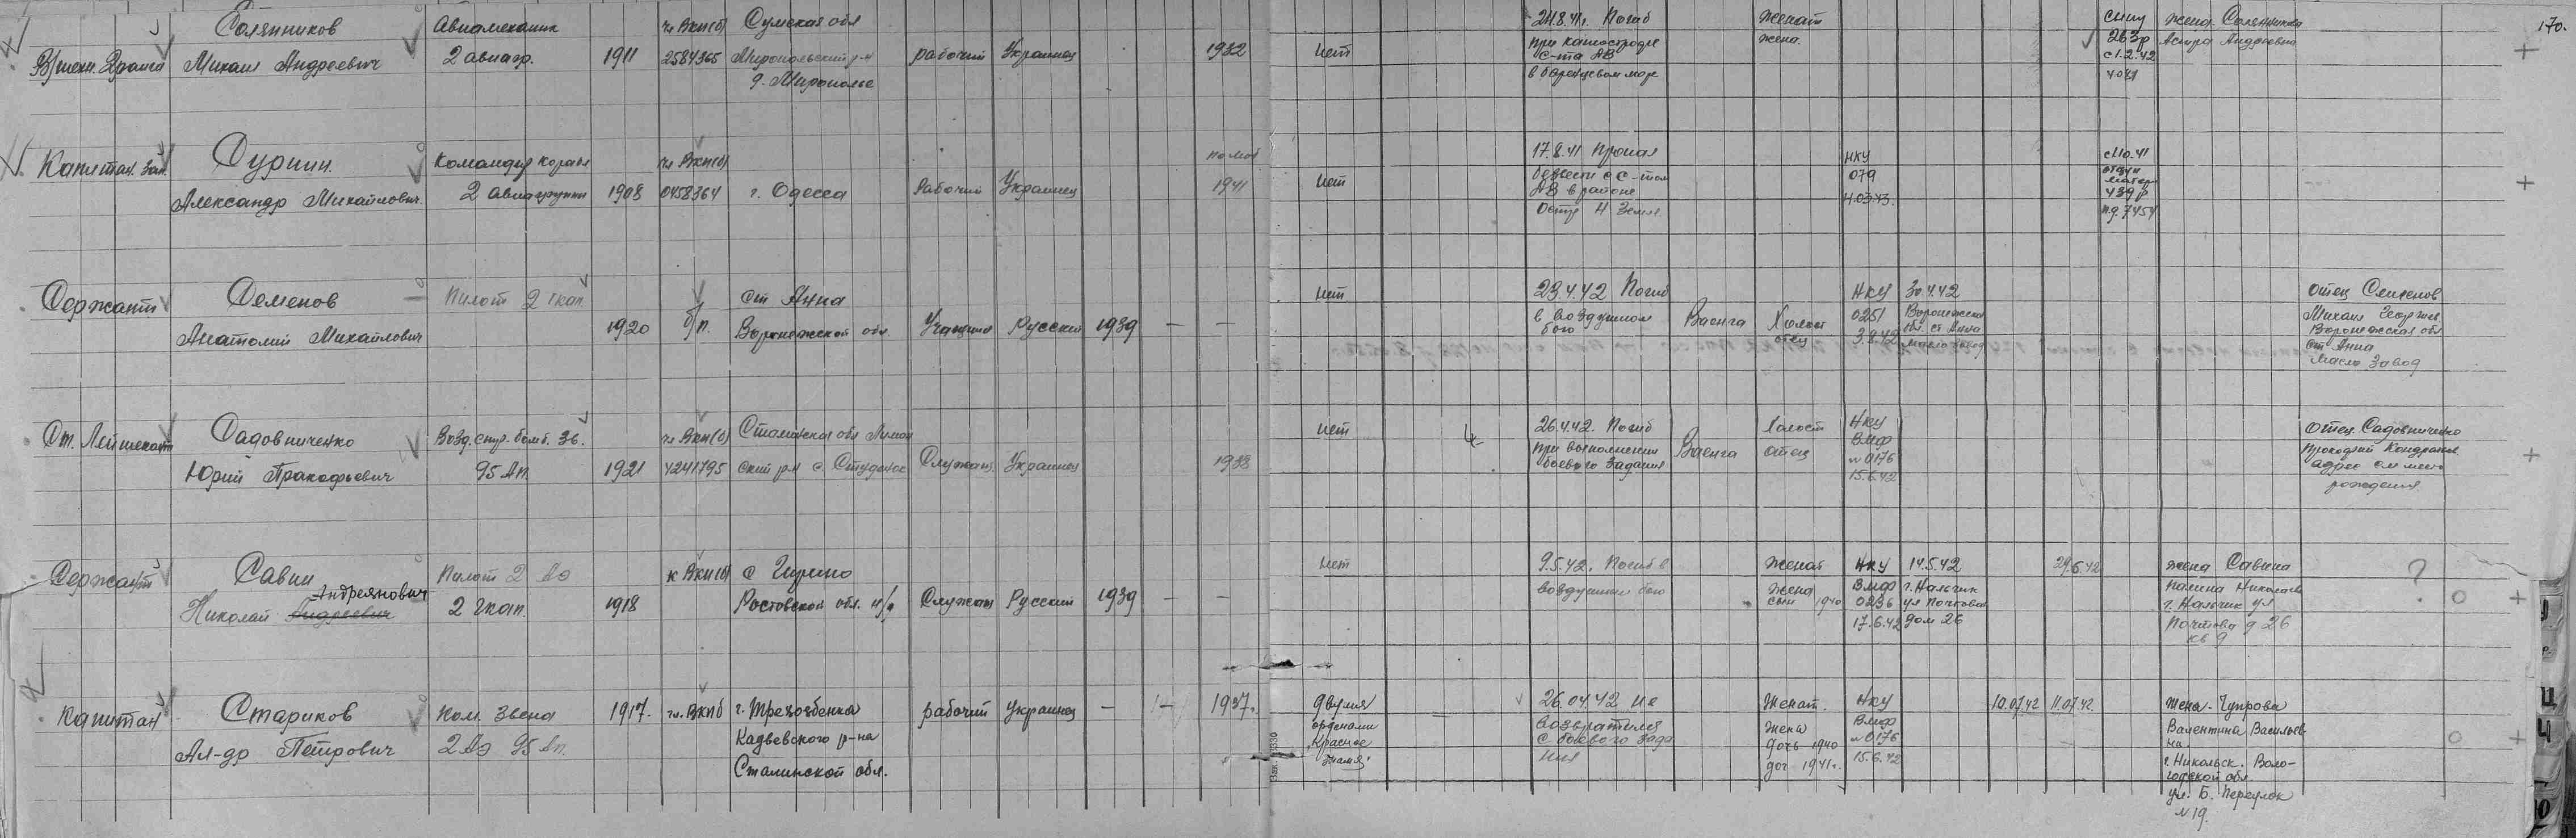 170.
Солянников Авиамеханик чл ВКП(б) Сумская обл 24.8.41г. Погиб женат сыну жена Солянникова
Михаил Андреевич 2 авиагр. 1911 2584365 Миропольский р-н рабочий Украинец 1932 нет при катастрофе жена. 263р Андреевна
с-та АВ с 1.2.42
г. Мирополье в баренцевом море
Капитан Командир корабля чл ВКП(б) 17.8.41 Пропал НКУ с 1.10.41
Александр Михайлович 2 авиагруппы 1908 0458364 г. Одесса Рабочий Украинец 1941 нет безвести с С-том 079
АВ в районе 439р
Остр Н Земля. 4.03.43. 7454
Сержант Семенов Пилот 2 гкап ст Анна нет 23.4.42 Погиб НКУ 30.4.42 отец Семенов
Анатолий Михайлович 1920 б/п. Воронежской обл. Учащийся Русский 1939 — — в воздушном Ваенга Холост 0251 Воронежская Михаил Георгиев
бою отец 3.8.42 обл. ст Анна Воронежская обл
маслозавод ст Анна
Масло Завод
Ст. Лейтенант Садовниченко Возд. стр. бомб. 36. чл ВКП(б) Сталинская обл Лиман нет 26.4.42. Погиб Холост НКУ отец Садовниченко
Юрий Прокофьевич 95 АП. 1921 4241795 ский р-н с Студенок Служащ Украинец 1938 при выполнении Ваенга отец ВМФ Прокофий Кондратьев
боевого задания №0176 адрес см место
15.6.42 рождения
Сержант Савин Пилот 2 АЭ к ВКП(б) нет 9.5.42. Погиб в женат НКУ 14.5.42 29.6.42 жена Савина ?
Андреянович
Николай Андреевич 2 гкап. 1918 Ростовской обл. н/Д Служащ Русский 1939 — — воздушном бою жена ВМФ г. Нальчик Николаевна
сын 1940 0236 ул Почтовая г. Нальчик ул
17.6.42 дом 26 Почтовая д 26
кв 9
Капитан Стариков Ком. Звена 1917. чл. ВКПб г. Трехизбенка рабочий Украинец — — 1937. двумя 26.04.42 не Женат. НКУ 10.07.42 11.07.42. Жена - Чупрова
Ал-др Петрович 2 АЭ 95 АП. Кадиевского р-на орденами возвратился жена ВМФ Валентина Васильев
Сталинской обл. Красное с боевого зада дочь 1940 №0176 на.
знамя ния доч 1941г. 15.6.42 г. Никольск. Воло-
годской обл
ул. Б. Переулок
№19.